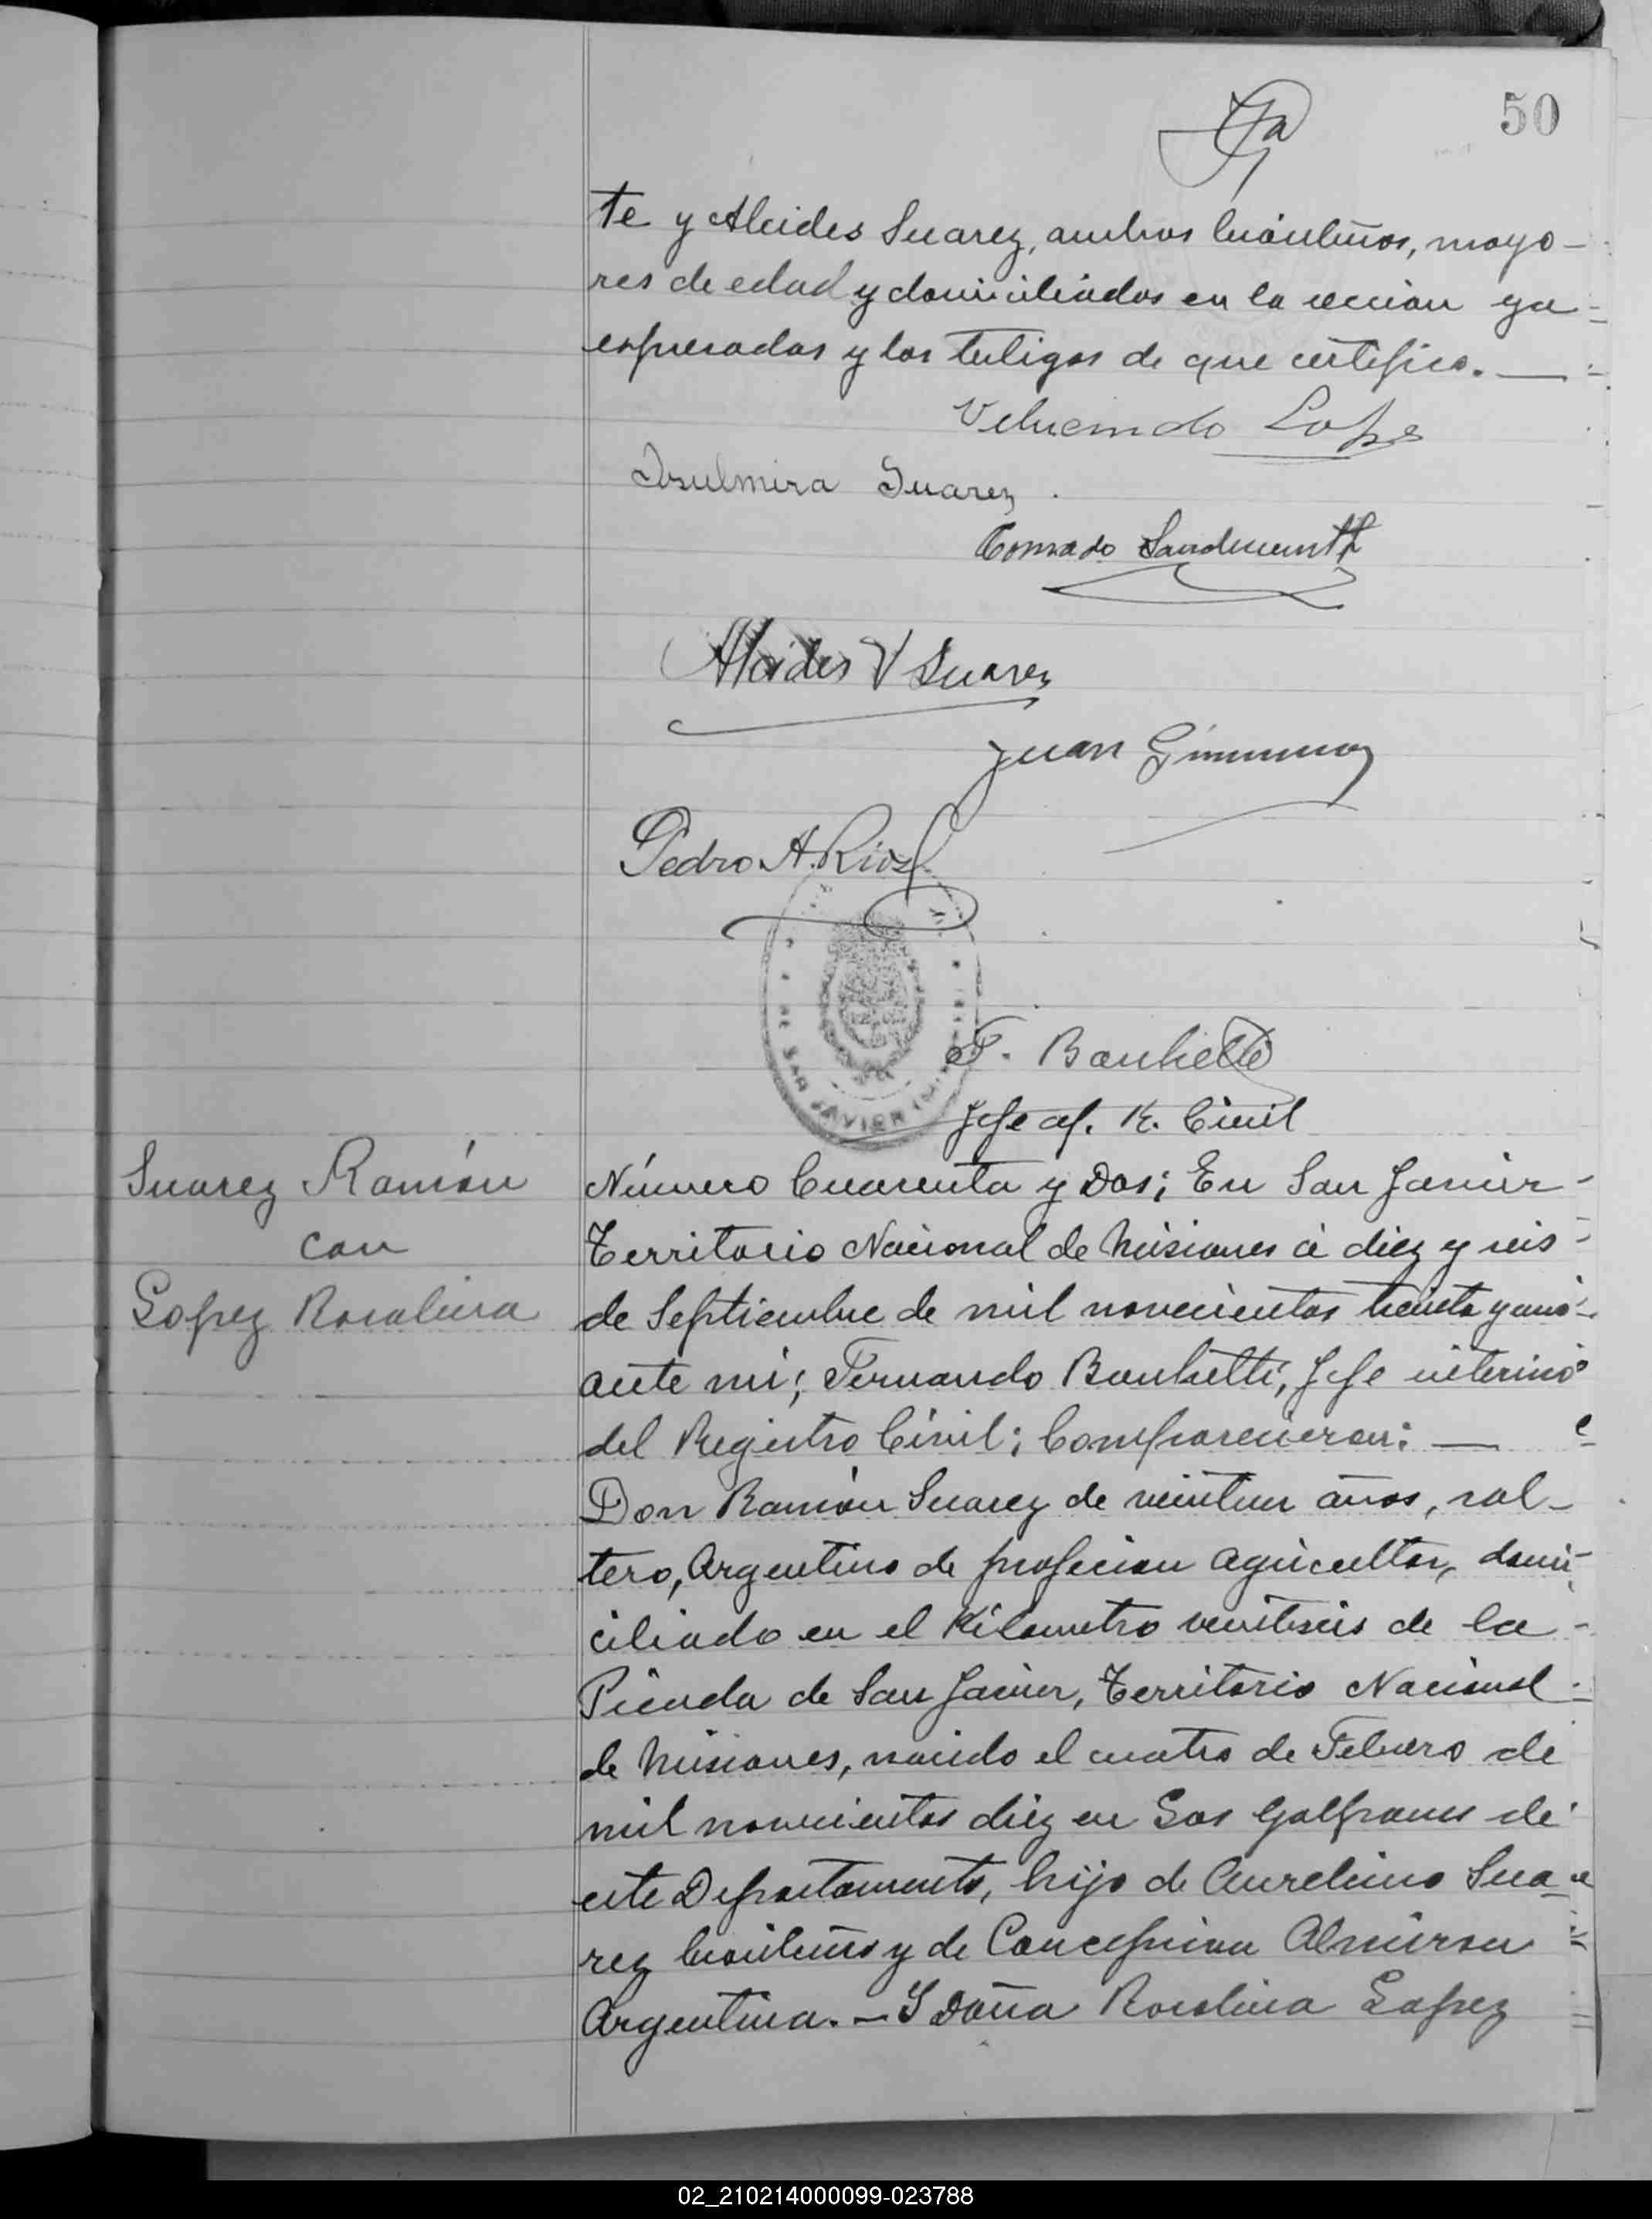 50
te y Alcides Suarez, ambos brásileños, mayo-
res de edad y domiciliados en la seccion ya
expresadas y los testigos de que certifico. —
Lope
Suarez
Conrado
Alcides V Suarez
Juan Gimenez
Pedro A. Rios
DE SAN JAVIER
F. Banchetti
Jefe of. R. Civil
Suarez Ramón
con
Lopez Rosalina
Número Cuarenta y Dos; En San Javier
Territorio Nacional de Misiones á diez y seis
de Septiembre de mil novecientos treinta y uno
ante mi; Fernando Banchetti, Jefe interino
del Registro Civil; Comparecieron: —
Don Ramón Suarez de veintiun años, sol-
tero, Argentino de profesion agricultor, domi-
ciliado en el Kilometro veintiseis de la
Picada de San Javier, Territorio Nacional
de Misiones, nacido el cuatro de Febrero de
mil novecientos diez en Los Galpones de
este Departamento, hijo de Aureliano Sua-
rez brasileño y de Concepcion Almiron
Argentina. — Y Doña Rosalina Lopez
02_210214000099-023788